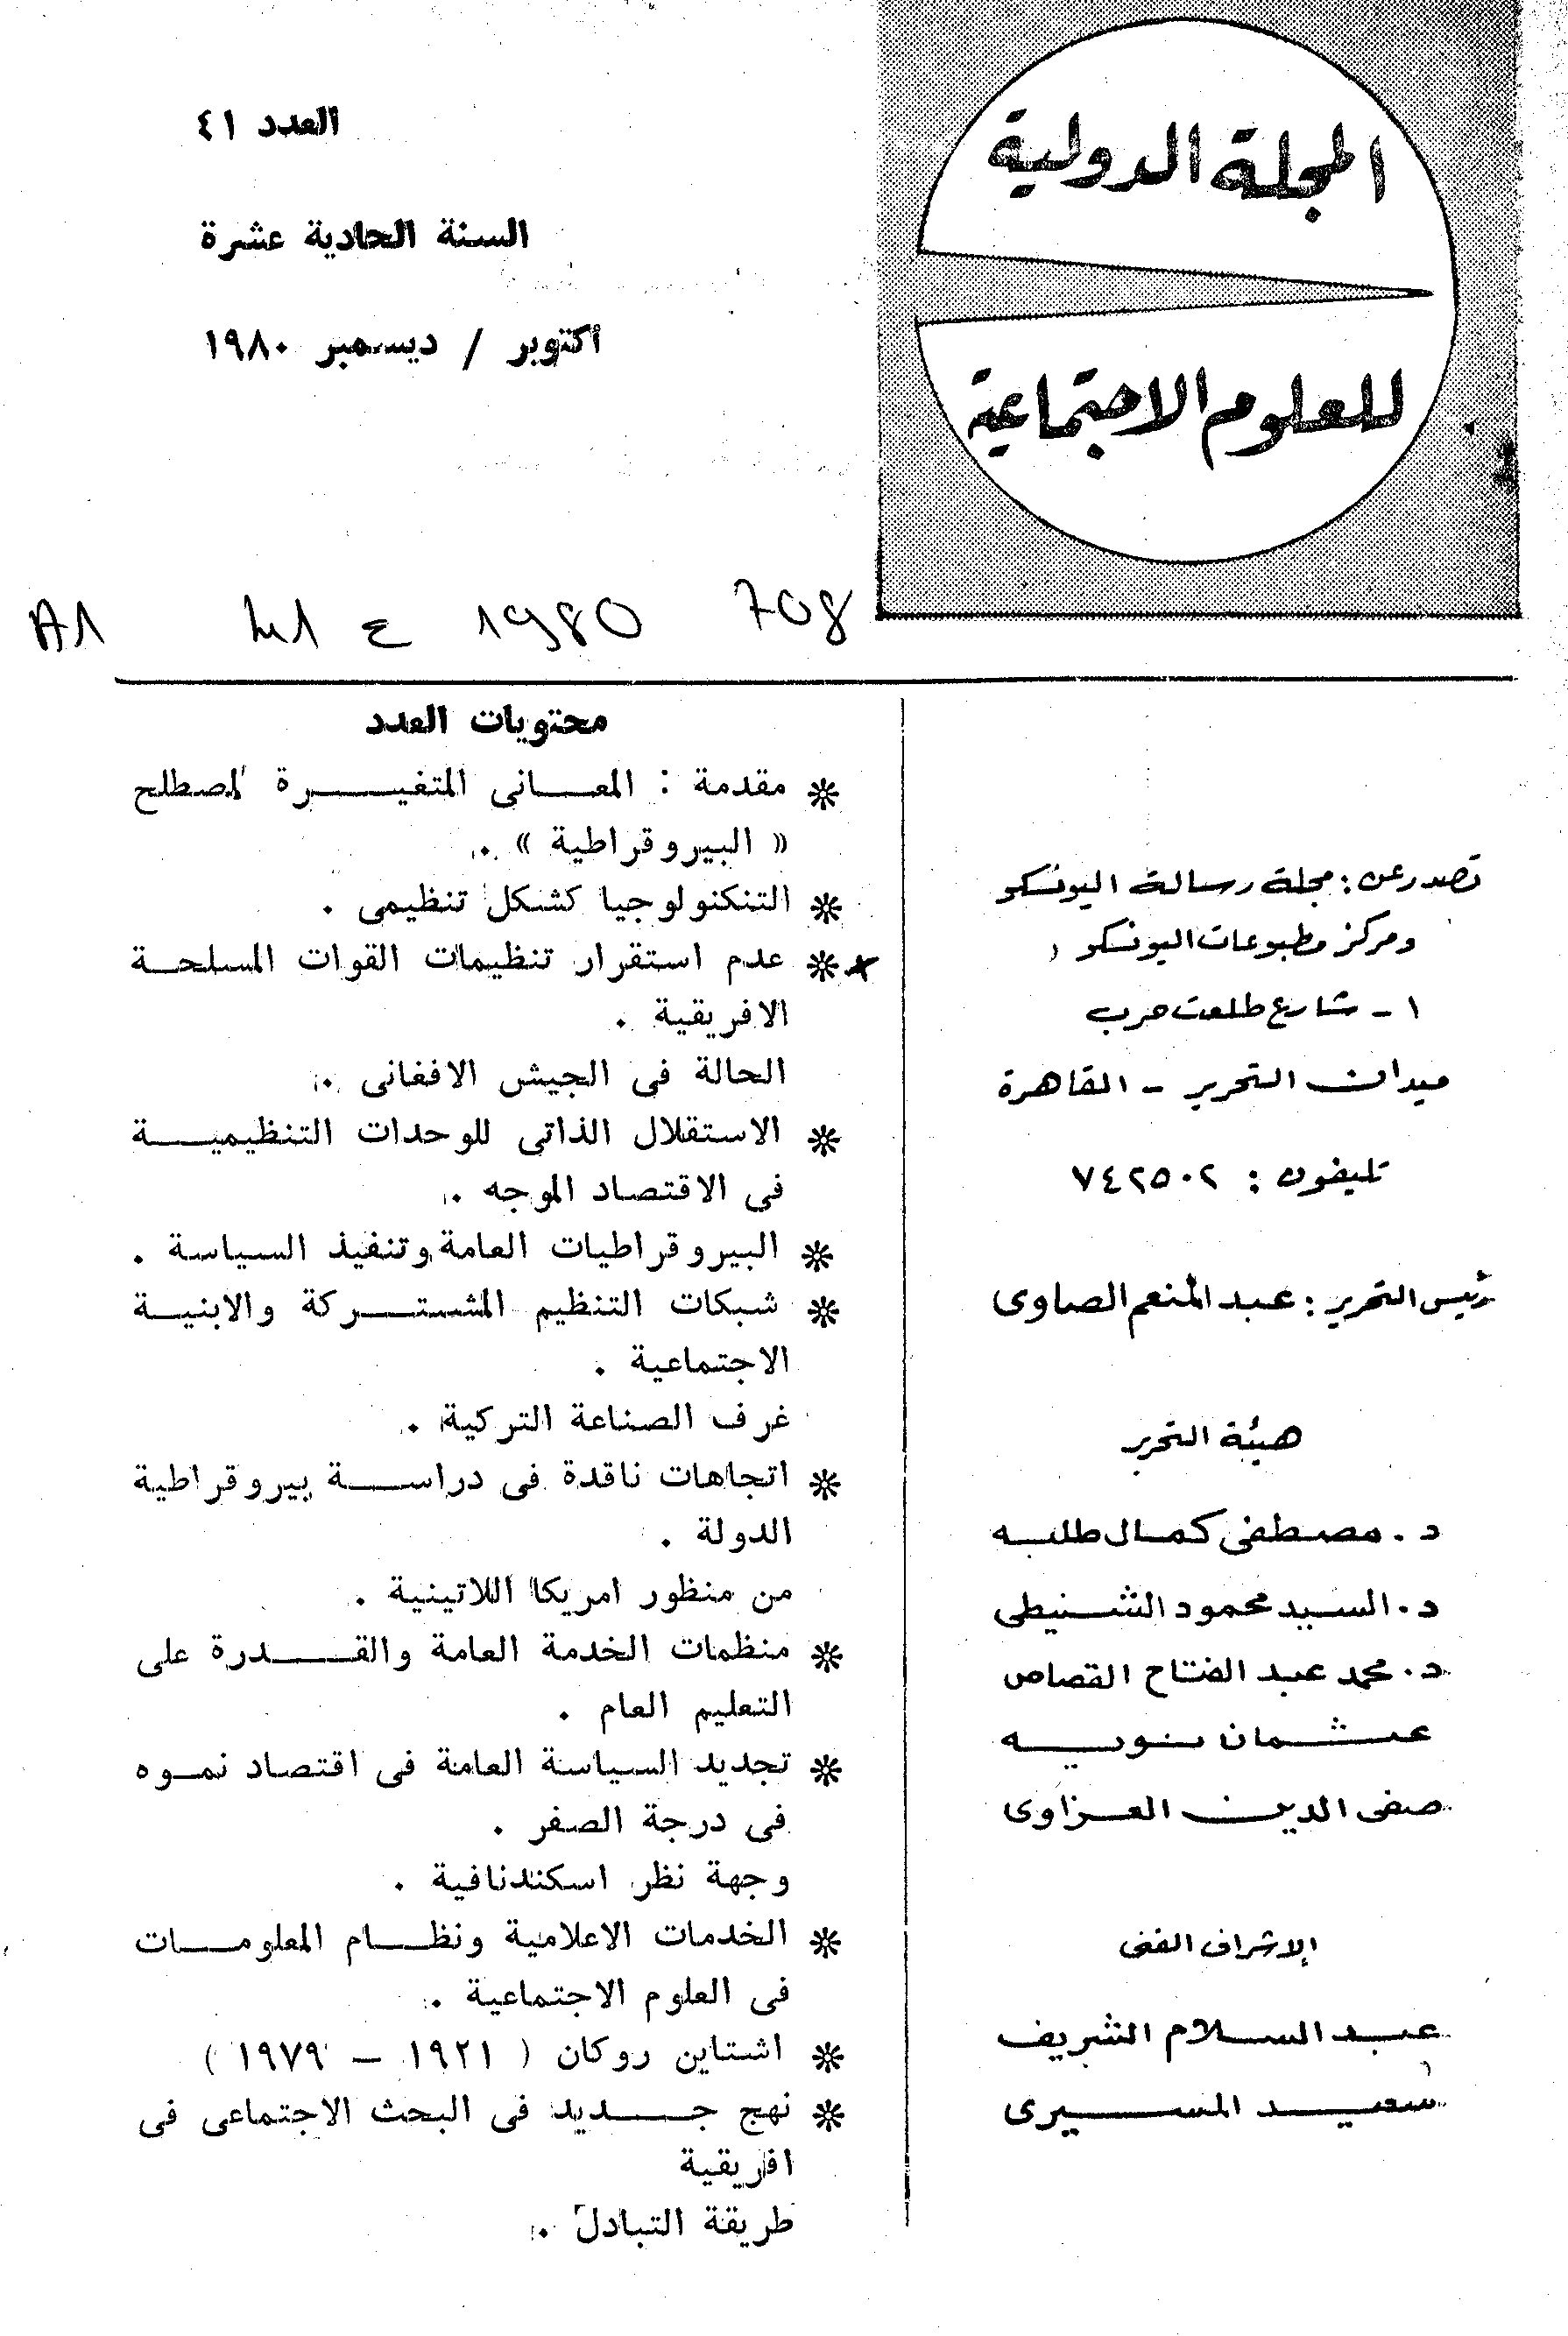 المجلة الدولية
للعلوم الاجتماعية
العدد ٤١
السنة الحادية عشرة
أكتوبر / ديسمبر ١٩٨٠
A1 41 ع 1980 708
تصدر عن : مجلة رسالة اليونسكو
ومركز مطبوعات اليونسكو
١ - شارع طلعت حرب
ميدان التحرير - القاهرة
تليفون : ٧٤٢٥٠٢
رئيس التحرير : عبد المنعم الصاوى
هيئة التحرير
د . مصطفى كمال طلبه
د . السيد محمود الشنيطى
د . محمد عبد الفتاح القصاص
عثمان نويه
صفى الدين العزاوى
الإشراف الفنى
عبد السلام الشريف
سعيد المسيرى
محتويات العدد
* مقدمة : المعانى المتغيرة لمصطلح
« البيروقراطية » .
* التنكنولوجيا كشكل تنظيمى .
* عدم استقرار تنظيمات القوات المسلحة
الافريقية .
الحالة فى الجيش الافغانى .
* الاستقلال الذاتى للوحدات التنظيمية
فى الاقتصاد الموجه .
* البيروقراطيات العامة وتنفيذ السياسة .
* شبكات التنظيم المشتركة والابنية
الاجتماعية .
غرف الصناعة التركية .
* اتجاهات ناقدة فى دراسة بيروقراطية
الدولة .
من منظور امريكا اللاتينية .
* منظمات الخدمة العامة والقدرة على
التعليم العام .
* تجديد السياسة العامة فى اقتصاد نموه
فى درجة الصفر .
وجهة نظر اسكندنافية .
* الخدمات الاعلامية ونظام المعلومات
فى العلوم الاجتماعية .
* اشتاين روكان ( ١٩٢١ – ١٩٧٩ )
* نهج جديد فى البحث الاجتماعى فى
افريقية
طريقة التبادل .